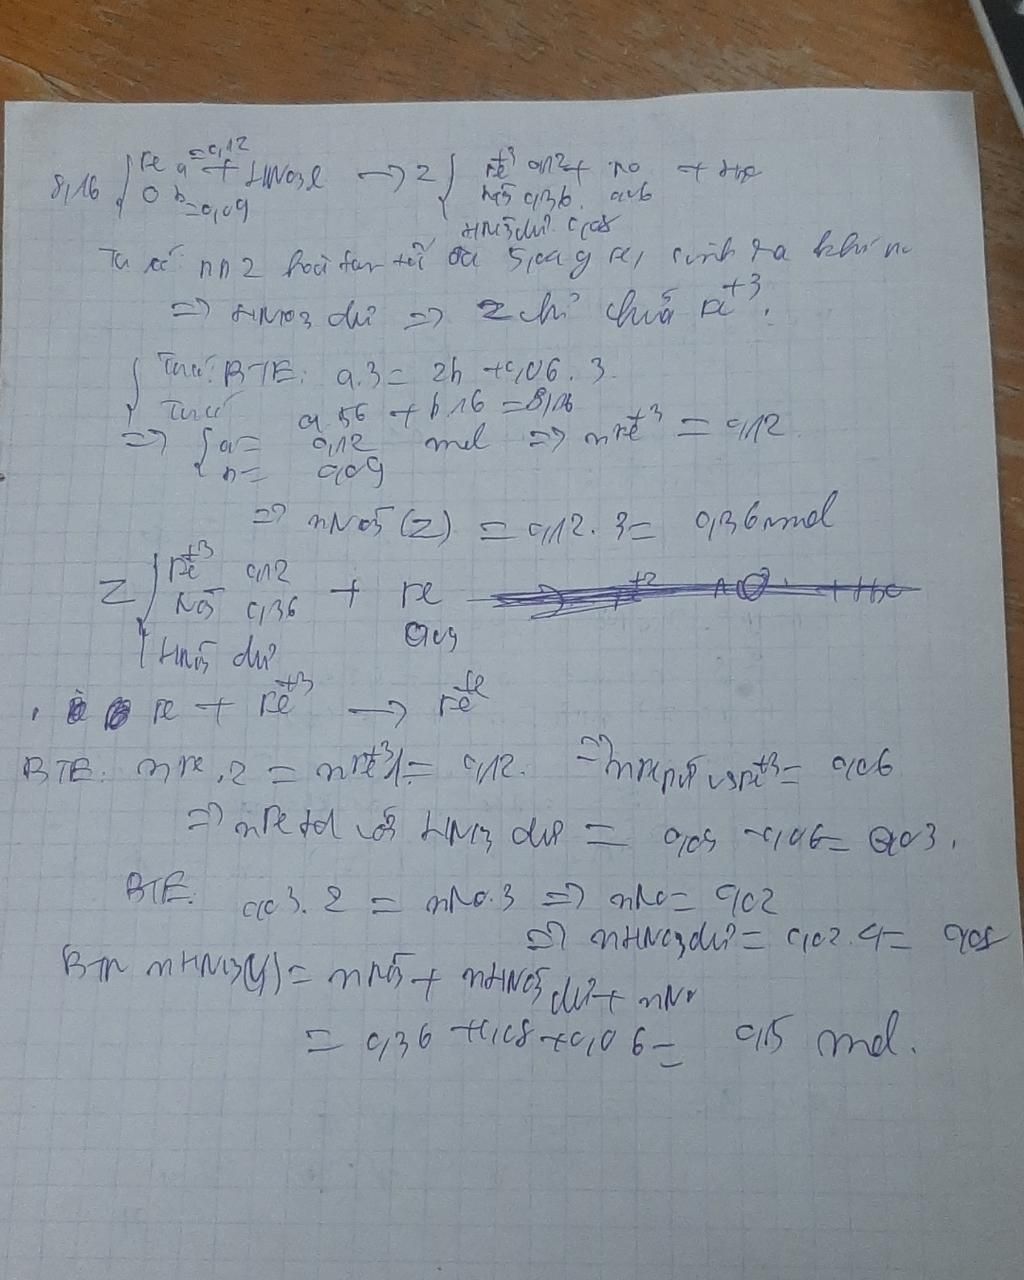 8,16 { Fe a =0,12 + HNO3 → Z { Fe+3 0,12 + NO + H2O
O b =0,09 NO3 0,36 0,06
HNO3 dư 0,08
Ta có: Z hoà tan tối đa 5,04 g Fe, sinh ra khí NO
=> HNO3 dư => Z chỉ chứa Fe+3.
Ta có: BTE: a.3 = 2b + 0,06.3
Ta có a.56 + b.16 = 8,16
=> { a = 0,12 mol => nFe+3 = 0,12
b = 0,09
=> nNO3 (Z) = 0,12.3 = 0,36 mol
Z { Fe+3 0,12 + Fe
NO3 0,36 0,09
HNO3 dư
Fe + Fe+3 → Fe+2
BTE: nFe.2 = nFe+3.1 = 0,12. => nFe pứ với Fe+3 = 0,06
=> nFe td với HNO3 dư = 0,09 - 0,06 = 0,03.
BTE: 0,03.2 = nNO.3 => nNO = 0,02
=> nHNO3 dư = 0,02.4 = 0,08
BTN nHNO3(Y) = nNO3 + nHNO3 dư + nNO
= 0,36 + 0,08 + 0,06 = 0,5 mol.